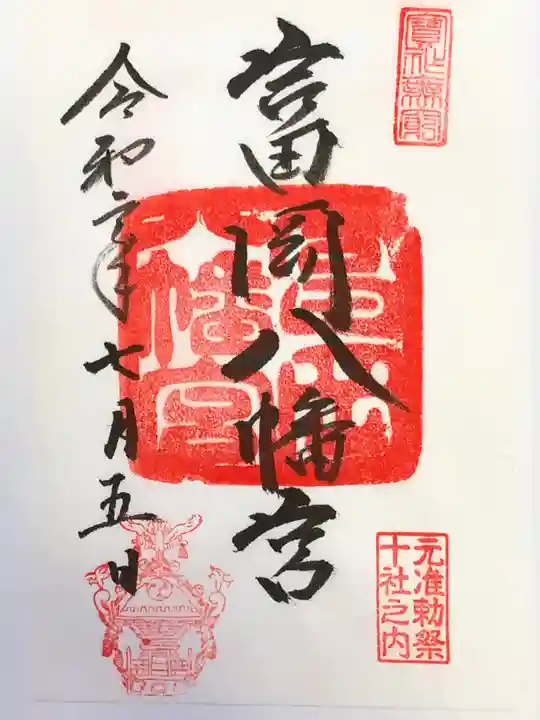 寶祚無窮
富岡八幡宮
元准勅祭
十社之内
令和元年七月五日